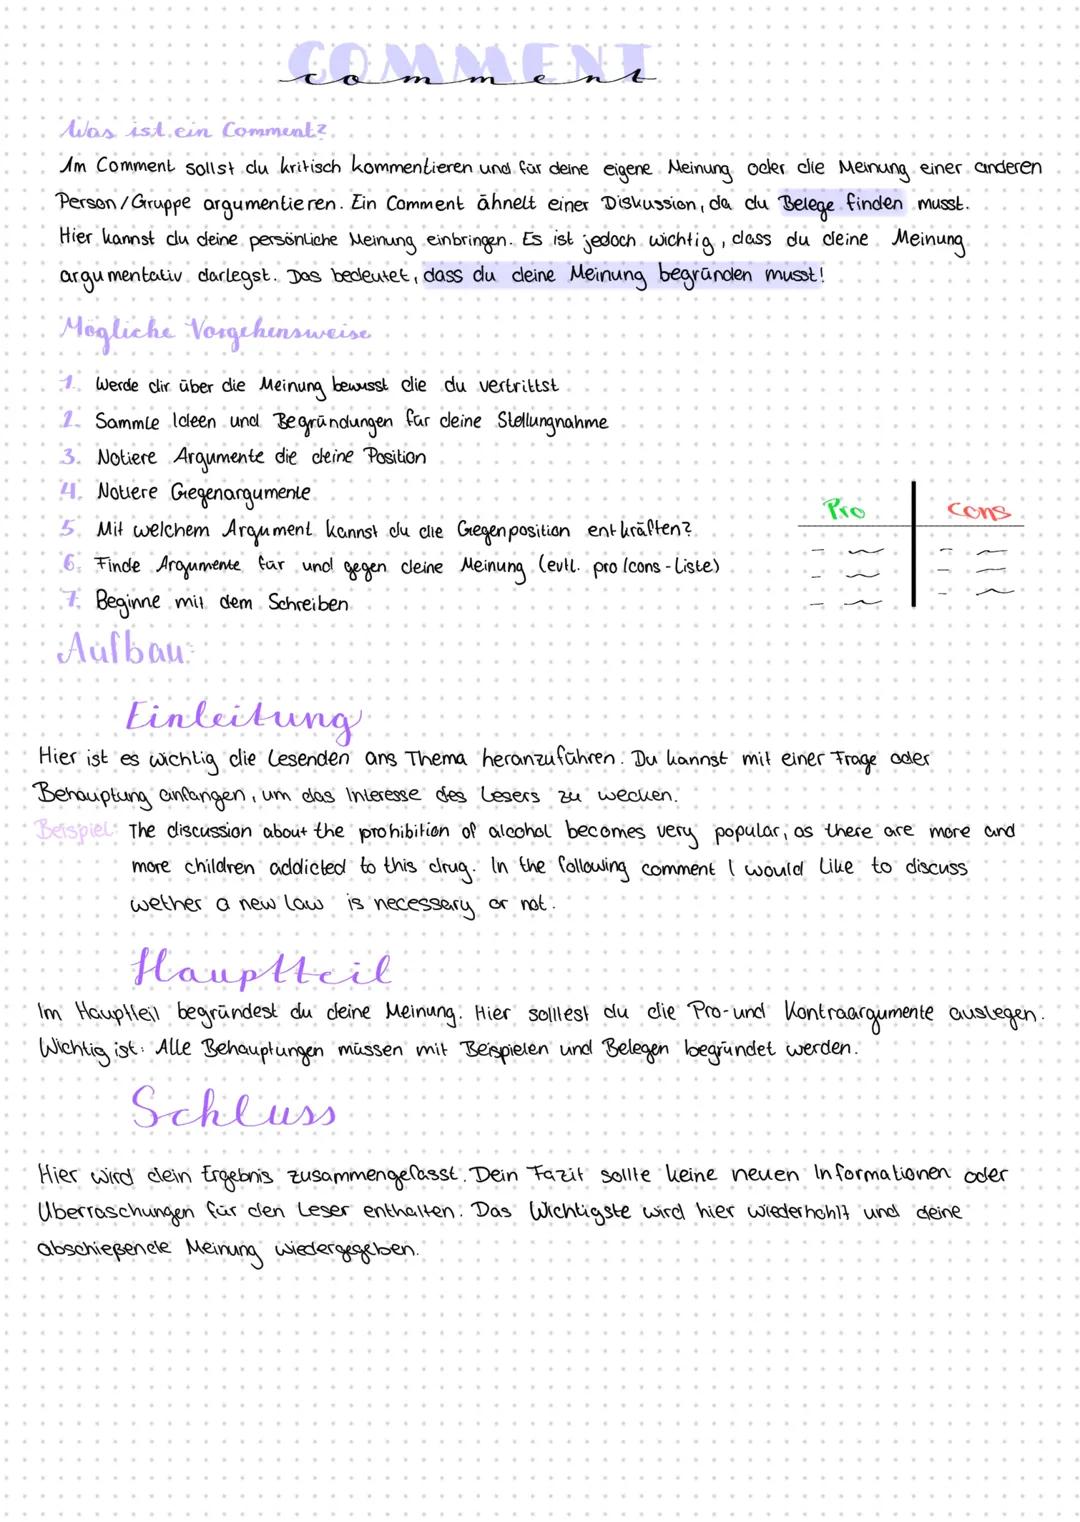 COMMENT
comment
Was ist ein Comment?
Im Comment sollst du kritisch kommentieren und für deine eigene Meinung oder die Meinung einer anderen
Person/Gruppe argumentieren. Ein Comment ähnelt einer Diskussion, da du Belege finden musst.
Hier kannst du deine persönliche Meinung einbringen. Es ist jedoch wichtig, dass du deine Meinung
argumentativ darlegst. Das bedeutet, dass du deine Meinung begründen musst!
Mögliche Vorgehensweise
1. Werde dir über die Meinung bewusst die du vertrittst
2. Sammle Ideen und Begründungen für deine Stellungnahme
3. Notiere Argumente die deine Position
4. Notiere Gegenargumente
5. Mit welchem Argument kannst du die Gegenposition entkräften?
6. Finde Argumente für und gegen deine Meinung (evtl. pro/cons-Liste)
7. Beginne mit dem Schreiben
Pro
Cons
Aufbau:
Einleitung
Hier ist es wichtig die Lesenden ans Thema heranzuführen. Du kannst mit einer Frage oder
Behauptung anfangen, um das Interesse des Lesers zu wecken.
Beispiel: The discussion about the prohibition of alcohol becomes very popular, as there are more and
more children addicted to this drug. In the following comment I would like to discuss
wether a new law is necessary or not.
Hauptteil
Im Hauptteil begründest du deine Meinung. Hier solltest du die Pro-und Kontraargumente auslegen.
Wichtig ist: Alle Behauptungen müssen mit Beispielen und Belegen begründet werden.
Schluss
Hier wird dein Ergebnis zusammengefasst. Dein Fazit sollte keine neuen Informationen oder
Überraschungen für den Leser enthalten. Das Wichtigste wird hier wiederhohlt und deine
abschießende Meinung wiedergegeben.